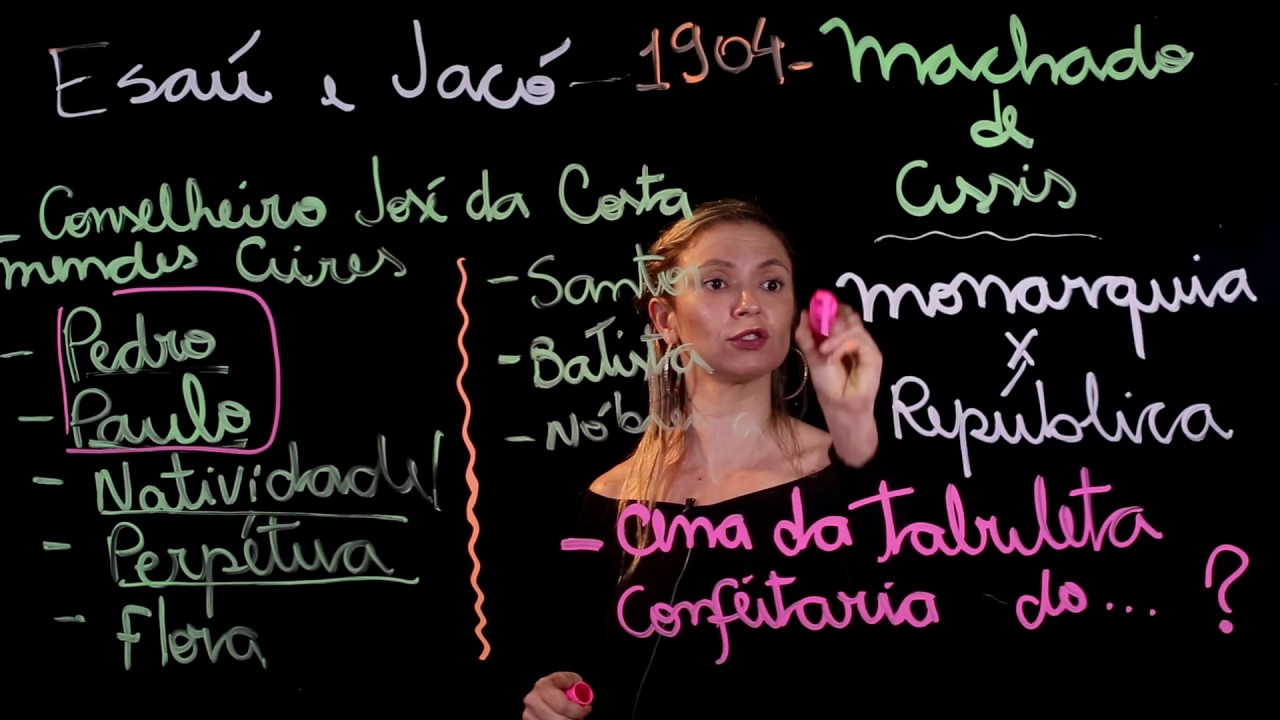 Esaú e Jacó - 1904 - Machado
de
Assis
- Conselheiro José da Costa
mendes Aires
- Pedro
- Paulo
- Natividade
- Perpétua
- Flora
- Santos
- Batista
monarquia
x
República
- Cena da Tabuleta
Confeitaria do... ?